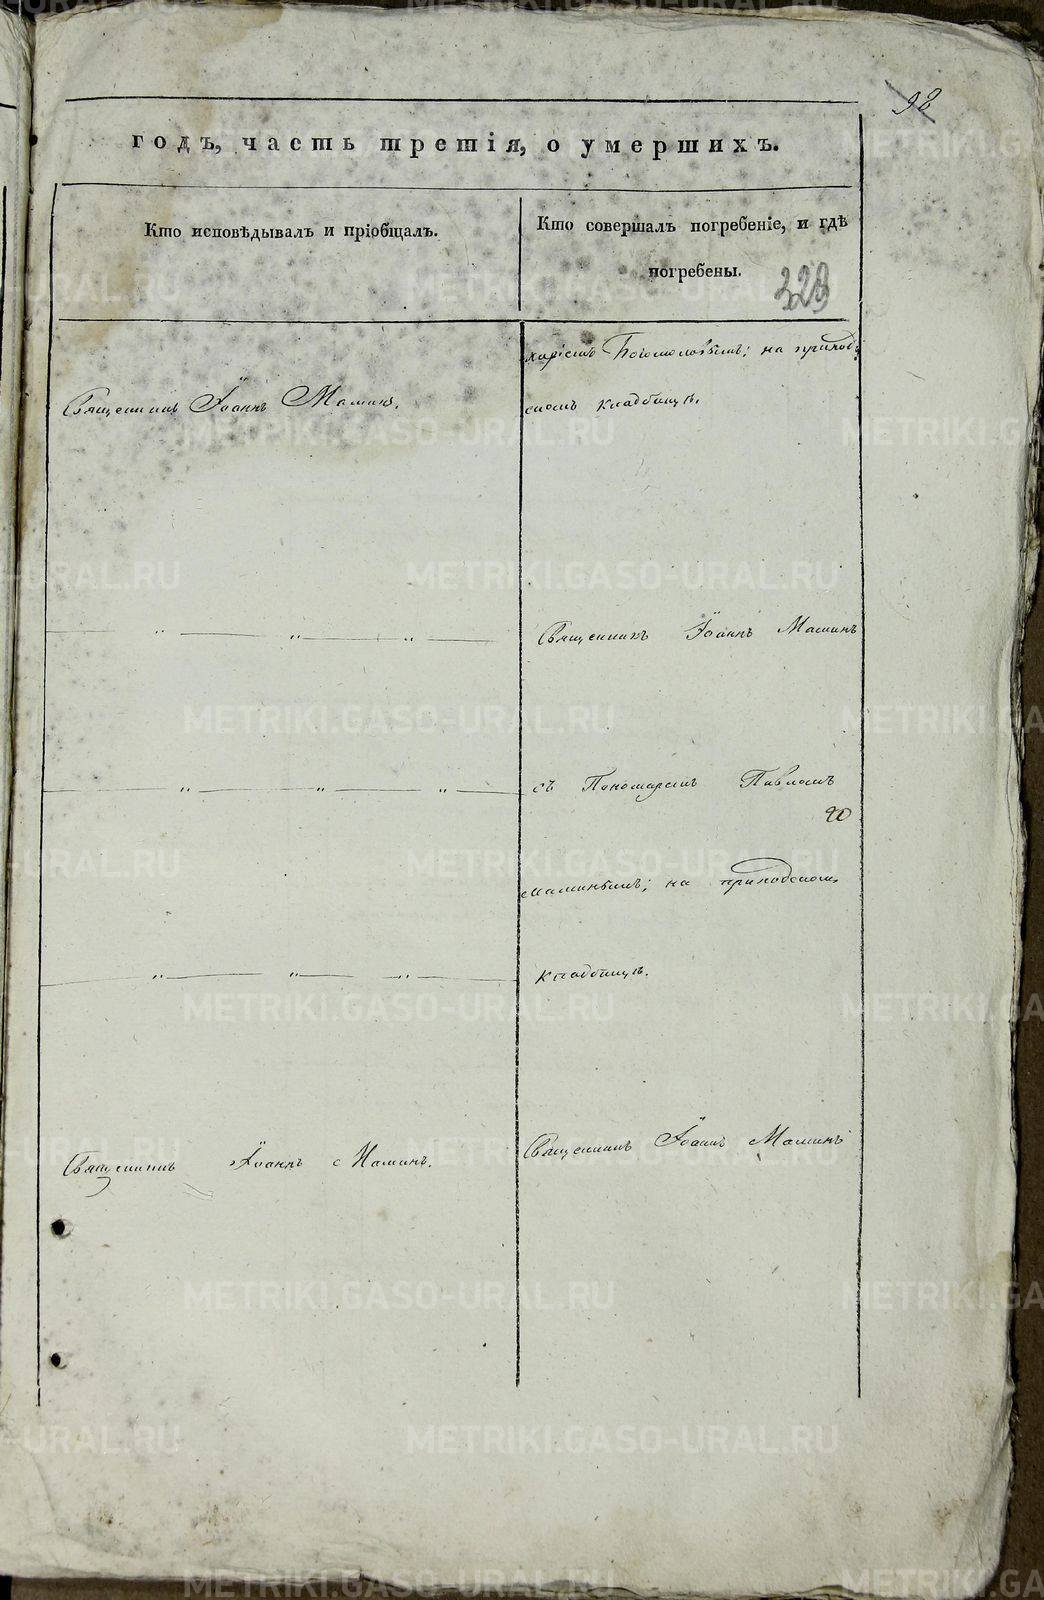 98
годъ, часть третія, о умершихъ.
Кто исповѣдывалъ и пріобщалъ.
Кто совершалъ погребеніе, и гдѣ
погребены.
329
Богомоловымъ; на приход-
Священникъ Іоаннъ Маминъ.
скомъ кладбищѣ.
Священникъ Іоаннъ Маминъ
съ Пономаремъ Павломъ
Маминымъ; на приходскомъ
кладбищѣ.
Священникъ Іоаннъ Маминъ
Священникъ Іоаннъ Маминъ.
METRIKI.GASO-URAL.RU